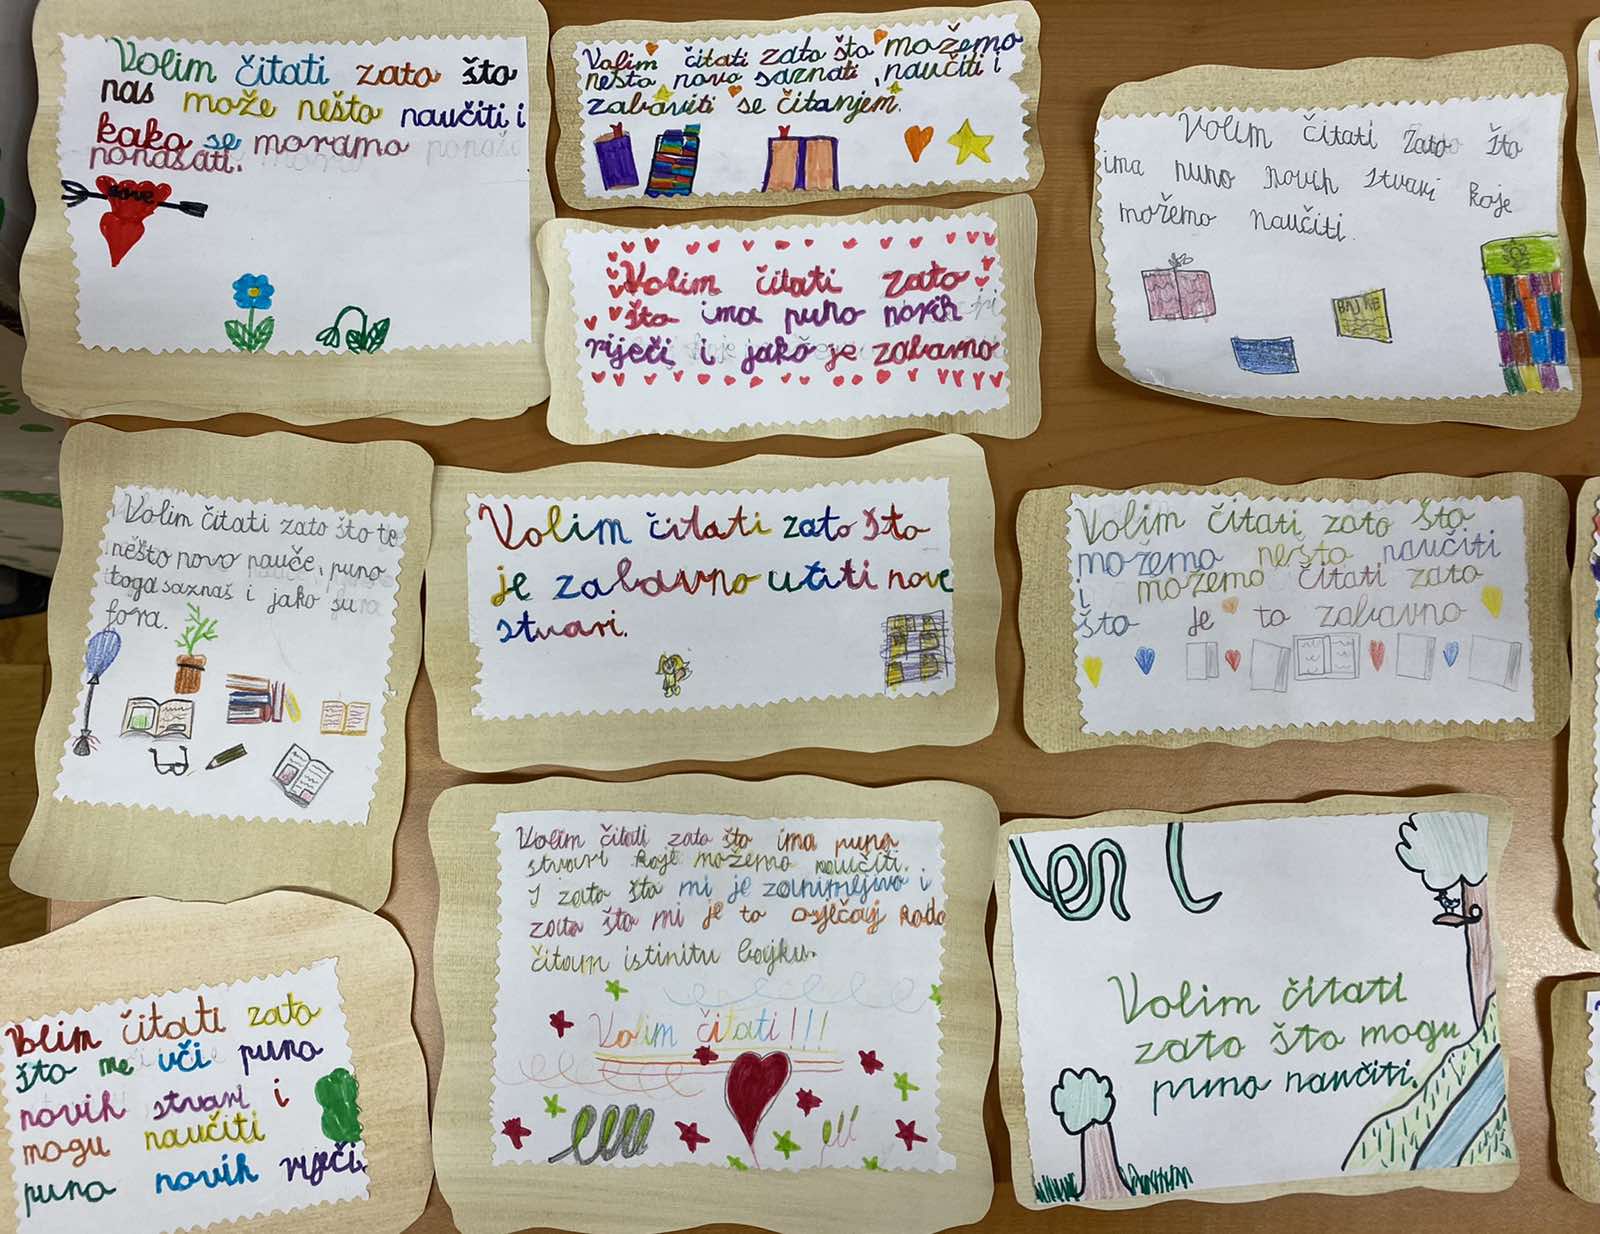 Volim čitati zato što
nas može nešto naučiti i
kako se moramo
ponašati.
Love
Volim čitati zato što možemo
nešto novo saznati, naučiti i
zabaviti se čitanjem.
Volim čitati zato
što ima puno novih
riječi i jako je zabavno
Volim čitati zato što
ima puno novih stvari koje
možemo naučiti.
BAJKE
Volim čitati zato što te
nešto novo nauče, puno
toga saznaš i jako su
fora.
Volim čitati zato što
je zabavno učiti nove
stvari.
Volim čitati zato što
možemo nešto naučiti
i možemo čitati zato
što je to zabavno
Volim čitati zato
što me uči puno
novih stvari i
mogu naučiti
puno novih riječi.
Volim čitati zato što ima puno
stvari koje možemo naučiti.
I zato što mi je zanimljivo i
zato što mi je to osjećaj kada
čitam istinitu bajku.
Volim čitati!!!
Volim čitati
zato što mogu
puno naučiti.